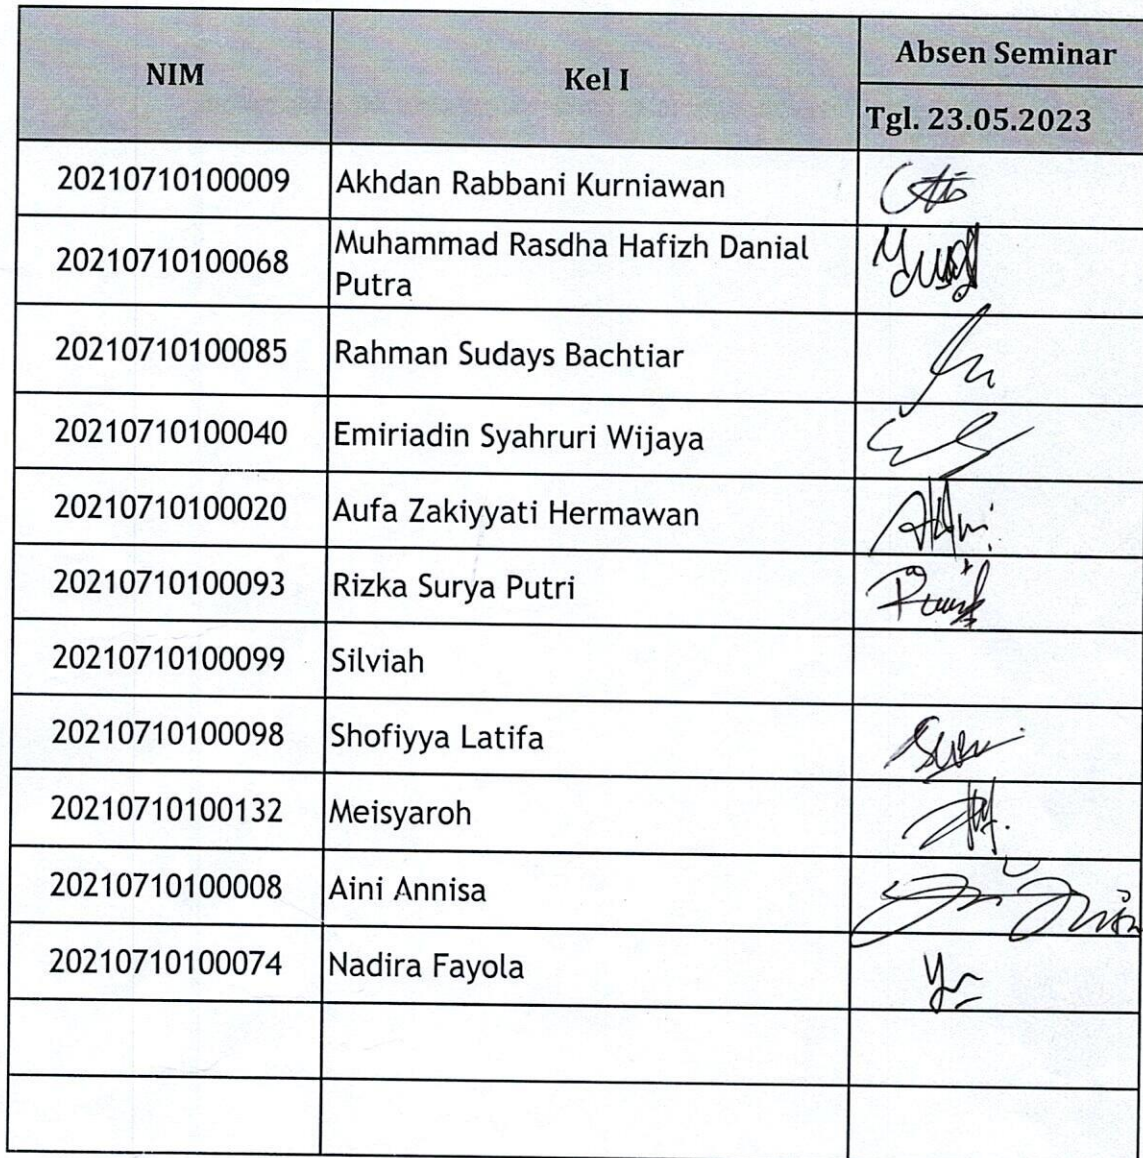 NIM
Kel I
Absen Seminar
Tgl. 23.05.2023
20210710100009 Akhdan Rabbani Kurniawan
20210710100068 Muhammad Rasdha Hafizh Danial
Putra
20210710100085 Rahman Sudays Bachtiar
20210710100040 Emiriadin Syahruri Wijaya
20210710100020 Aufa Zakiyyati Hermawan
20210710100093 Rizka Surya Putri
20210710100099 Silviah
20210710100098 Shofiyya Latifa
20210710100132 Meisyaroh
20210710100008 Aini Annisa
20210710100074 Nadira Fayola